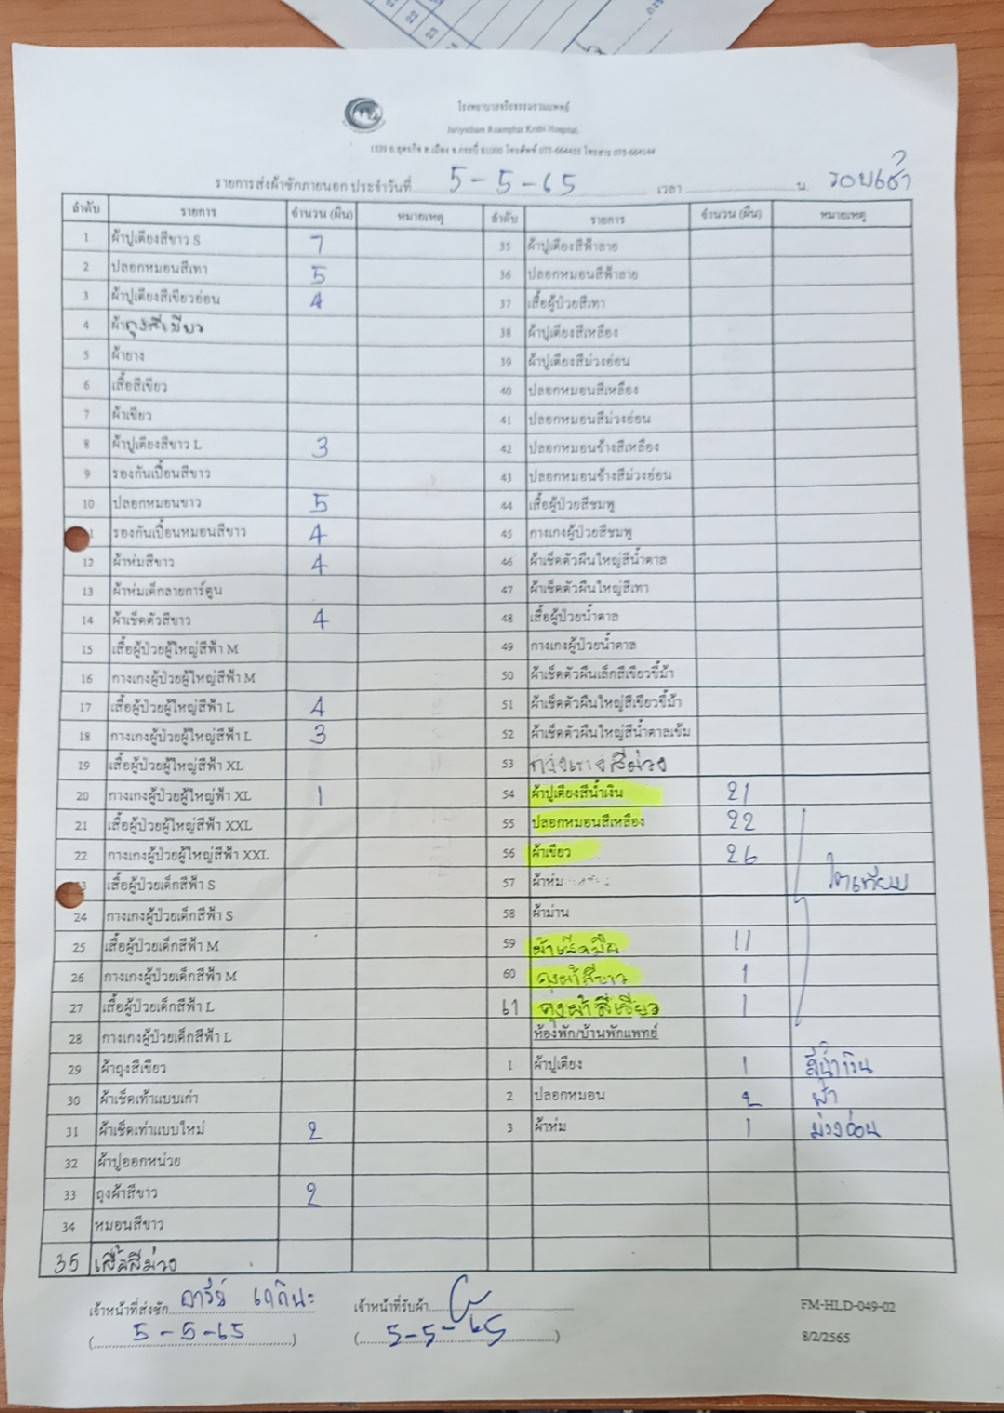 โรงพยาบาลจริยธรรมรวมแพทย์
Jariyatham Ruamphat Krabi Hospital.
รายการส่งผ้าซักภายนอก ประจำวันที่ 5-5-65 เวลา น. รอบเช้า
ลำดับ รายการ จำนวน (ผืน) หมายเหตุ ลำดับ รายการ จำนวน (ผืน) หมายเหตุ
1 ผ้าปูเตียงสีขาว S 7 35 ผ้าปูเตียงสีฟ้าลาย
2 ปลอกหมอนสีเทา 5 36 ปลอกหมอนสีฟ้าลาย
3 ผ้าปูเตียงสีเขียวอ่อน 4 37 เสื้อผู้ป่วยสีเทา
4 ผ้าถุงสีเขียว 38 ผ้าปูเตียงสีเหลือง
5 ผ้ายาง 39 ผ้าปูเตียงสีม่วงอ่อน
6 เสื้อสีเขียว 40 ปลอกหมอนสีเหลือง
7 ผ้าเขียว 41 ปลอกหมอนสีม่วงอ่อน
8 ผ้าปูเตียงสีขาว L 3 42 ปลอกหมอนข้างสีเหลือง
9 รองกันเปื้อนสีขาว 43 ปลอกหมอนข้างสีม่วงอ่อน
10 ปลอกหมอนขาว 5 44 เสื้อผู้ป่วยสีชมพู
รองกันเปื้อนหมอนสีขาว 4 45 กางเกงผู้ป่วยสีชมพู
12 ผ้าห่มสีขาว 4 46 ผ้าเช็ดตัวผืนใหญ่สีน้ำตาล
13 ผ้าห่มเด็กลายการ์ตูน 47 ผ้าเช็ดตัวผืนใหญ่สีเทา
14 ผ้าเช็ดตัวสีขาว 4 48 เสื้อผู้ป่วยน้ำตาล
15 เสื้อผู้ป่วยผู้ใหญ่สีฟ้า M 49 กางเกงผู้ป่วยน้ำตาล
16 กางเกงผู้ป่วยผู้ใหญ่สีฟ้า M 50 ผ้าเช็ดตัวผืนเล็กสีเขียวขี้ม้า
17 เสื้อผู้ป่วยผู้ใหญ่สีฟ้า L 4 51 ผ้าเช็ดตัวผืนใหญ่สีเขียวขี้ม้า
18 กางเกงผู้ป่วยผู้ใหญ่สีฟ้า L 3 52 ผ้าเช็ดตัวผืนใหญ่สีน้ำตาลเข้ม
19 เสื้อผู้ป่วยผู้ใหญ่สีฟ้า XL 53 กางเกงสีม่วง
20 กางเกงผู้ป่วยผู้ใหญ่ฟ้า XL 1 54 ผ้าปูเตียงสีน้ำเงิน 21
21 เสื้อผู้ป่วยผู้ใหญ่สีฟ้า XXL 55 ปลอกหมอนสีเหลือง 22
22 กางเกงผู้ป่วยผู้ใหญ่สีฟ้า XXL 56 ผ้าเขียว 26
เสื้อผู้ป่วยเด็กสีฟ้า S 57 ผ้าห่ม ไตเทียม
24 กางเกงผู้ป่วยเด็กสีฟ้า S 58 ผ้าม่าน
25 เสื้อผู้ป่วยเด็กสีฟ้า M 59 ผ้าเช็ดมือ 11
26 กางเกงผู้ป่วยเด็กสีฟ้า M 60 ถุงผ้าสีขาว 1
27 เสื้อผู้ป่วยเด็กสีฟ้า L 61 ถุงผ้าสีเขียว 1
28 กางเกงผู้ป่วยเด็กสีฟ้า L ห้องพัก/บ้านพักแพทย์
29 ผ้าถุงสีเขียว 1 ผ้าปูเตียง 1 สีน้ำเงิน
30 ผ้าเช็ดเท้าแบบเก่า 2 ปลอกหมอน 2 ฟ้า
31 ผ้าเช็ดเท้าแบบใหม่ 2 3 ผ้าห่ม 1 ม่วงอ่อน
32 ผ้าปูออกหน่วย
33 ถุงผ้าสีขาว 2
34 หมอนสีขาว
35 เสื้อสีม่วง
เจ้าหน้าที่ส่งซัก เจ้าหน้าที่รับผ้า FM-HLD-049-02
(5-5-65) (5-5-65) 8/2/2565